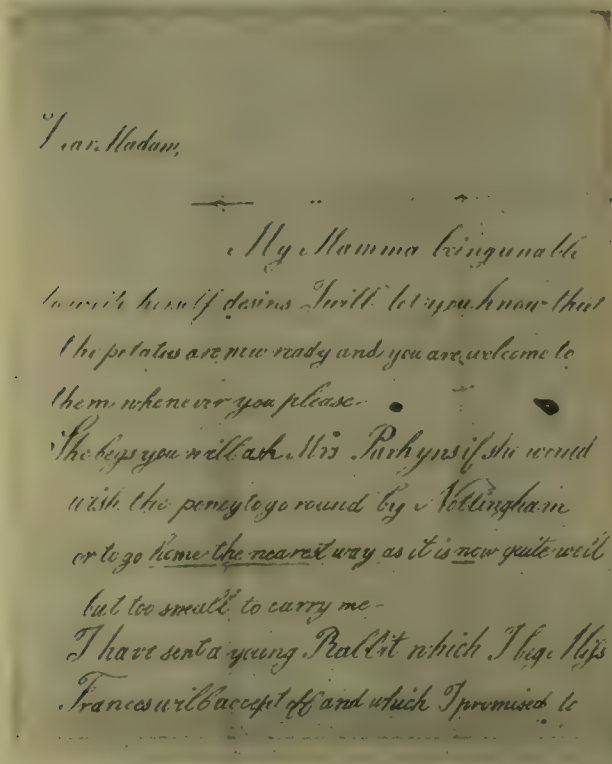 Dear Madam,
My Mamma being unable
to write herself desires I will let you know that
the potatoes are now ready and you are welcome to
them whenever you please.
She begs you will ask Mrs Parkyns if she would
wish the poney to go round by Nottingham
or to go home the nearest way as it is now quite well
but too small to carry me -
I have sent a young Rabbit which I beg Miss
Frances will accept off and which I promised to